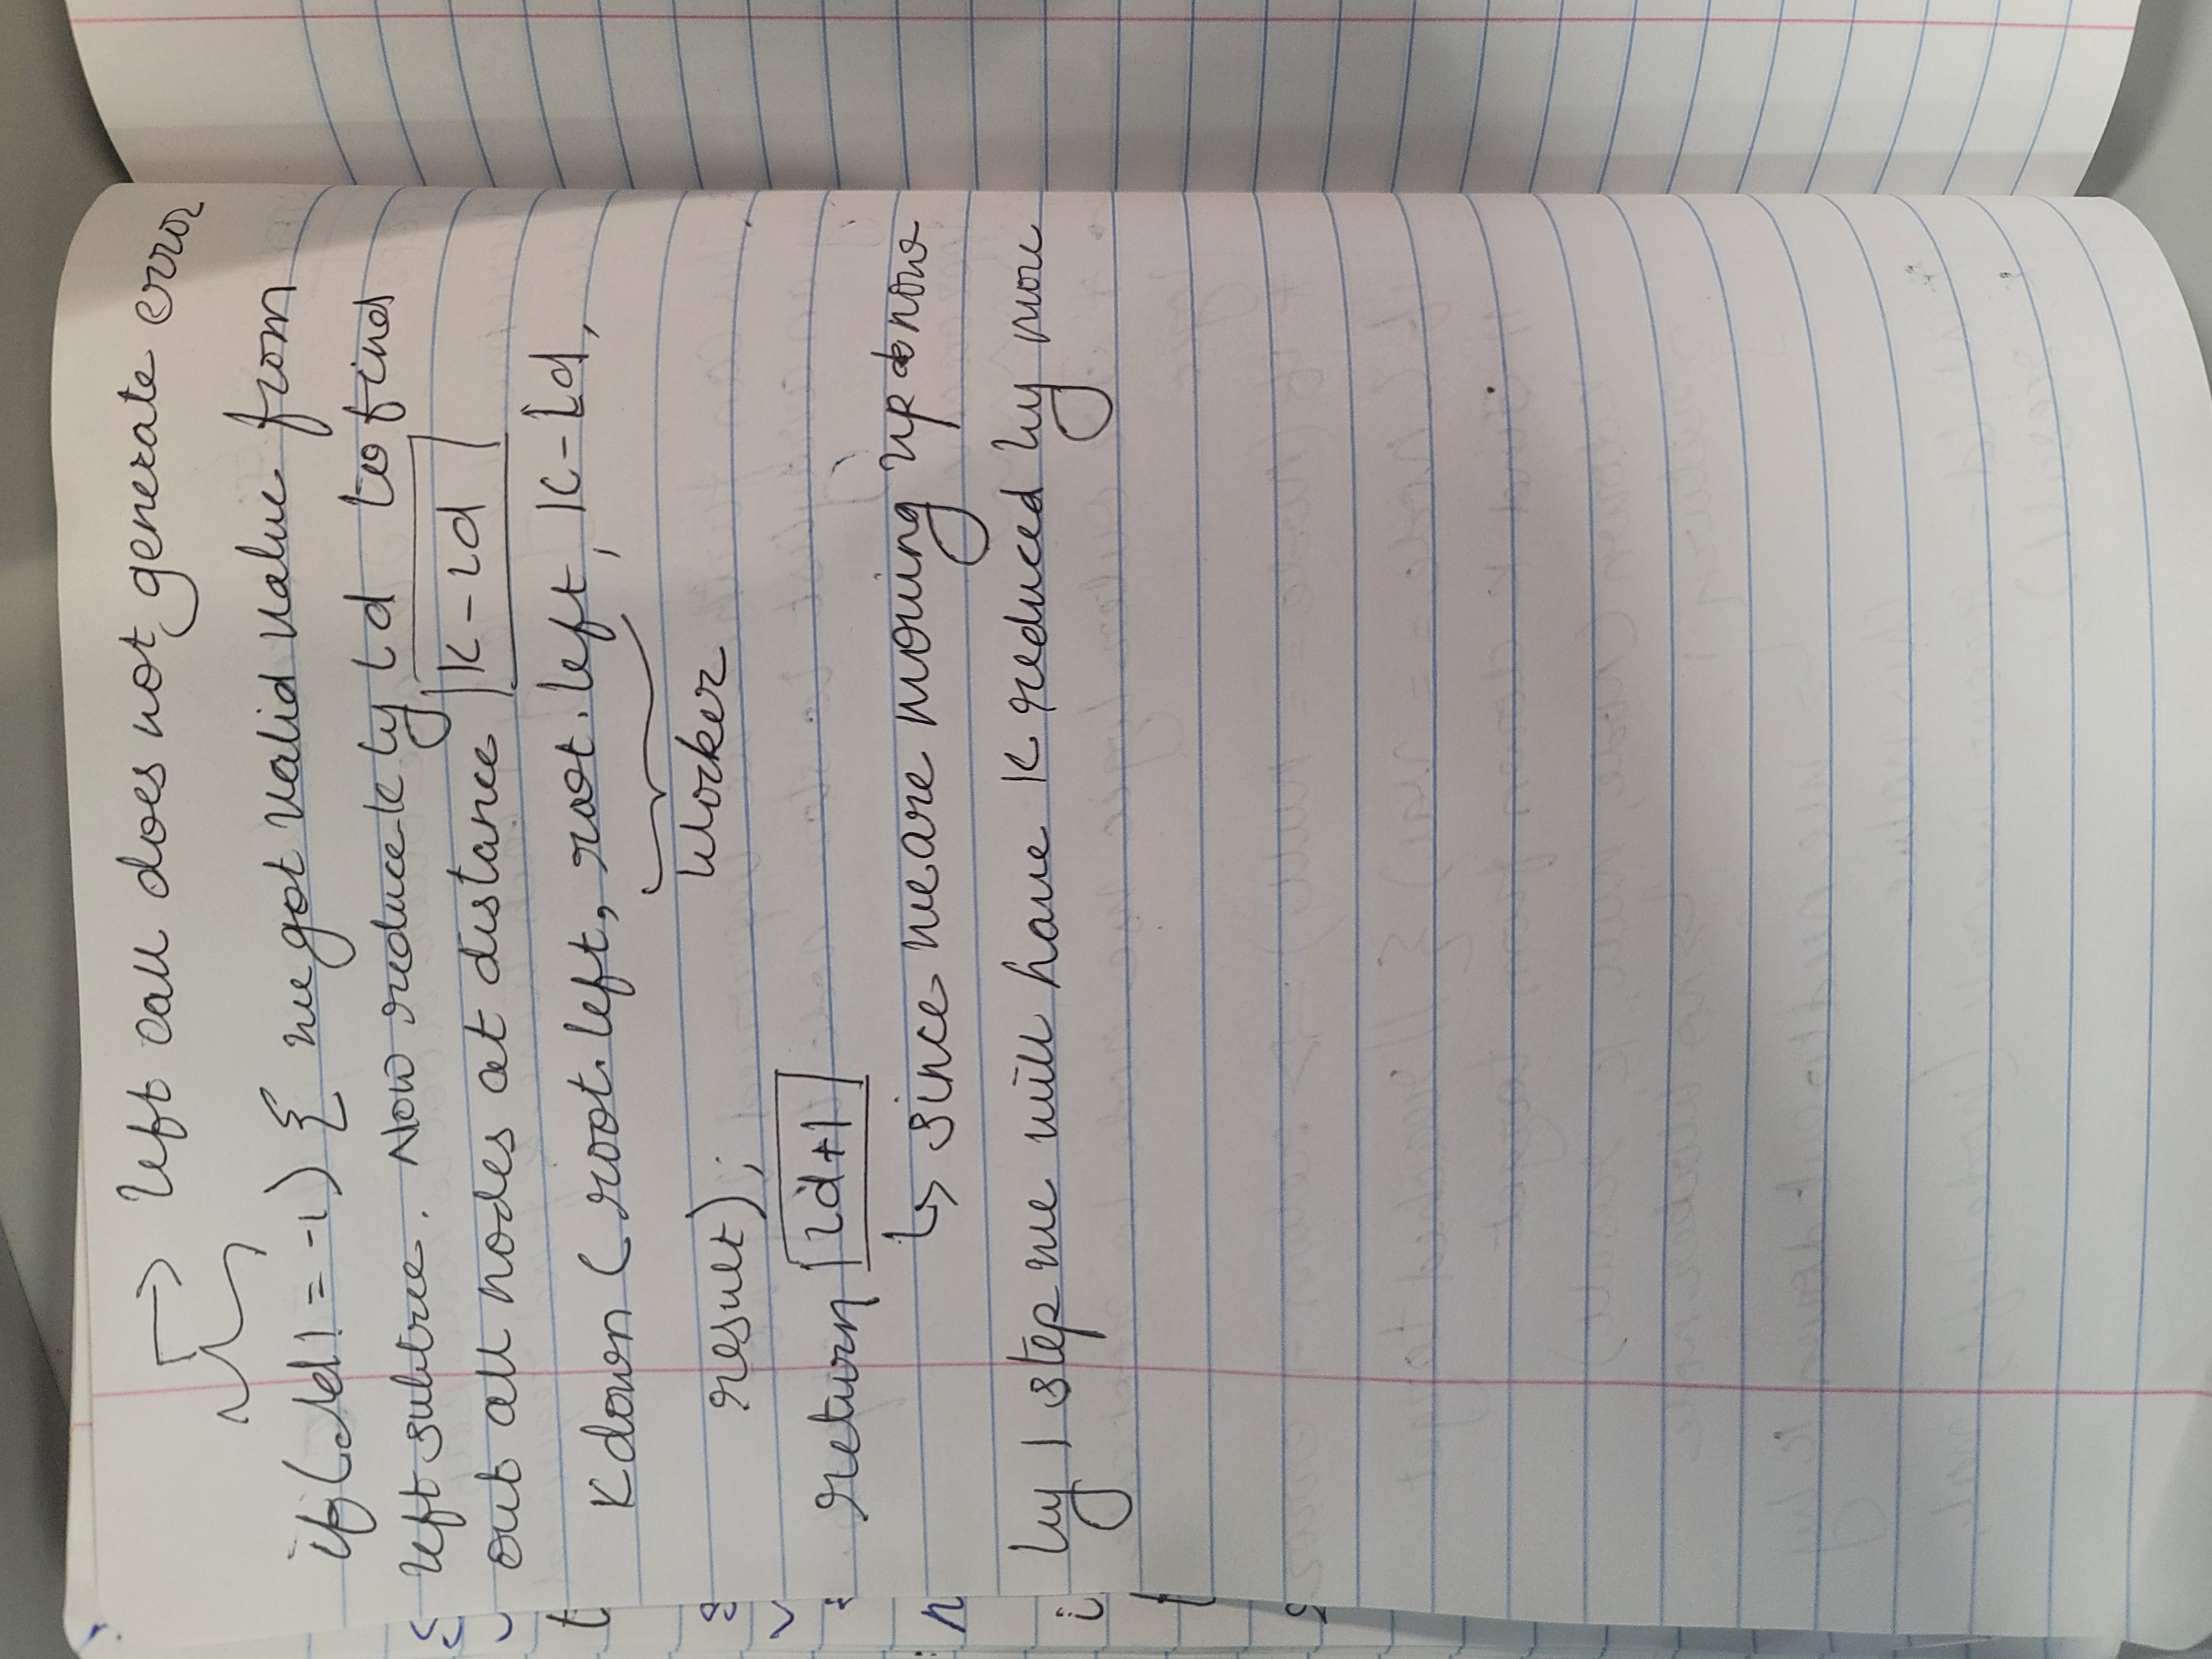 → left call does not generate error
if(ld != -1) { we got valid value from
left subtree. Now reduce k by ld to find
out all nodes at distance k-ld
Kdown ( root.left, root.left, k-ld,
blocker
result);
return ld+1
↳ since we are moving up now
by 1 step we will have k reduced by more